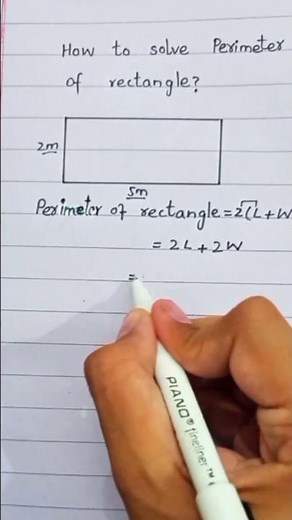 How to solve Perimeter
of rectangle?
2m
5m
Perimeter of rectangle = 2(L+W
= 2L + 2W
=
PIANO® fineliner™